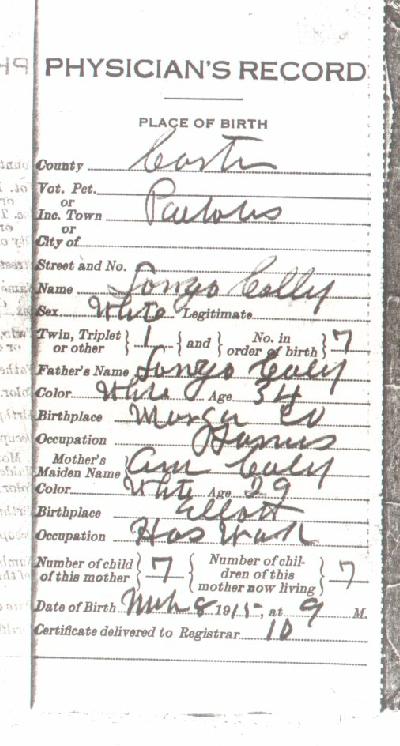 PHYSICIAN'S RECORD
PLACE OF BIRTH
County
Vot. Pct.
or
Inc. Town
or
City of
Street and No.
Name Lonzo
Sex White Legitimate
Twin, Triplet or other } 1 { and } No. in order of birth } 7
Father's Name Lonzo
Color White Age 34
Birthplace Morgan Co
Occupation
Mother's Maiden Name Ann
Color White Age 29
Birthplace Elliott
Occupation Hos Wark
Number of child of this mother } 7 { Number of children of this mother now living } 7
Date of Birth Mch 8 1915, at 9 M.
Certificate delivered to Registrar 10